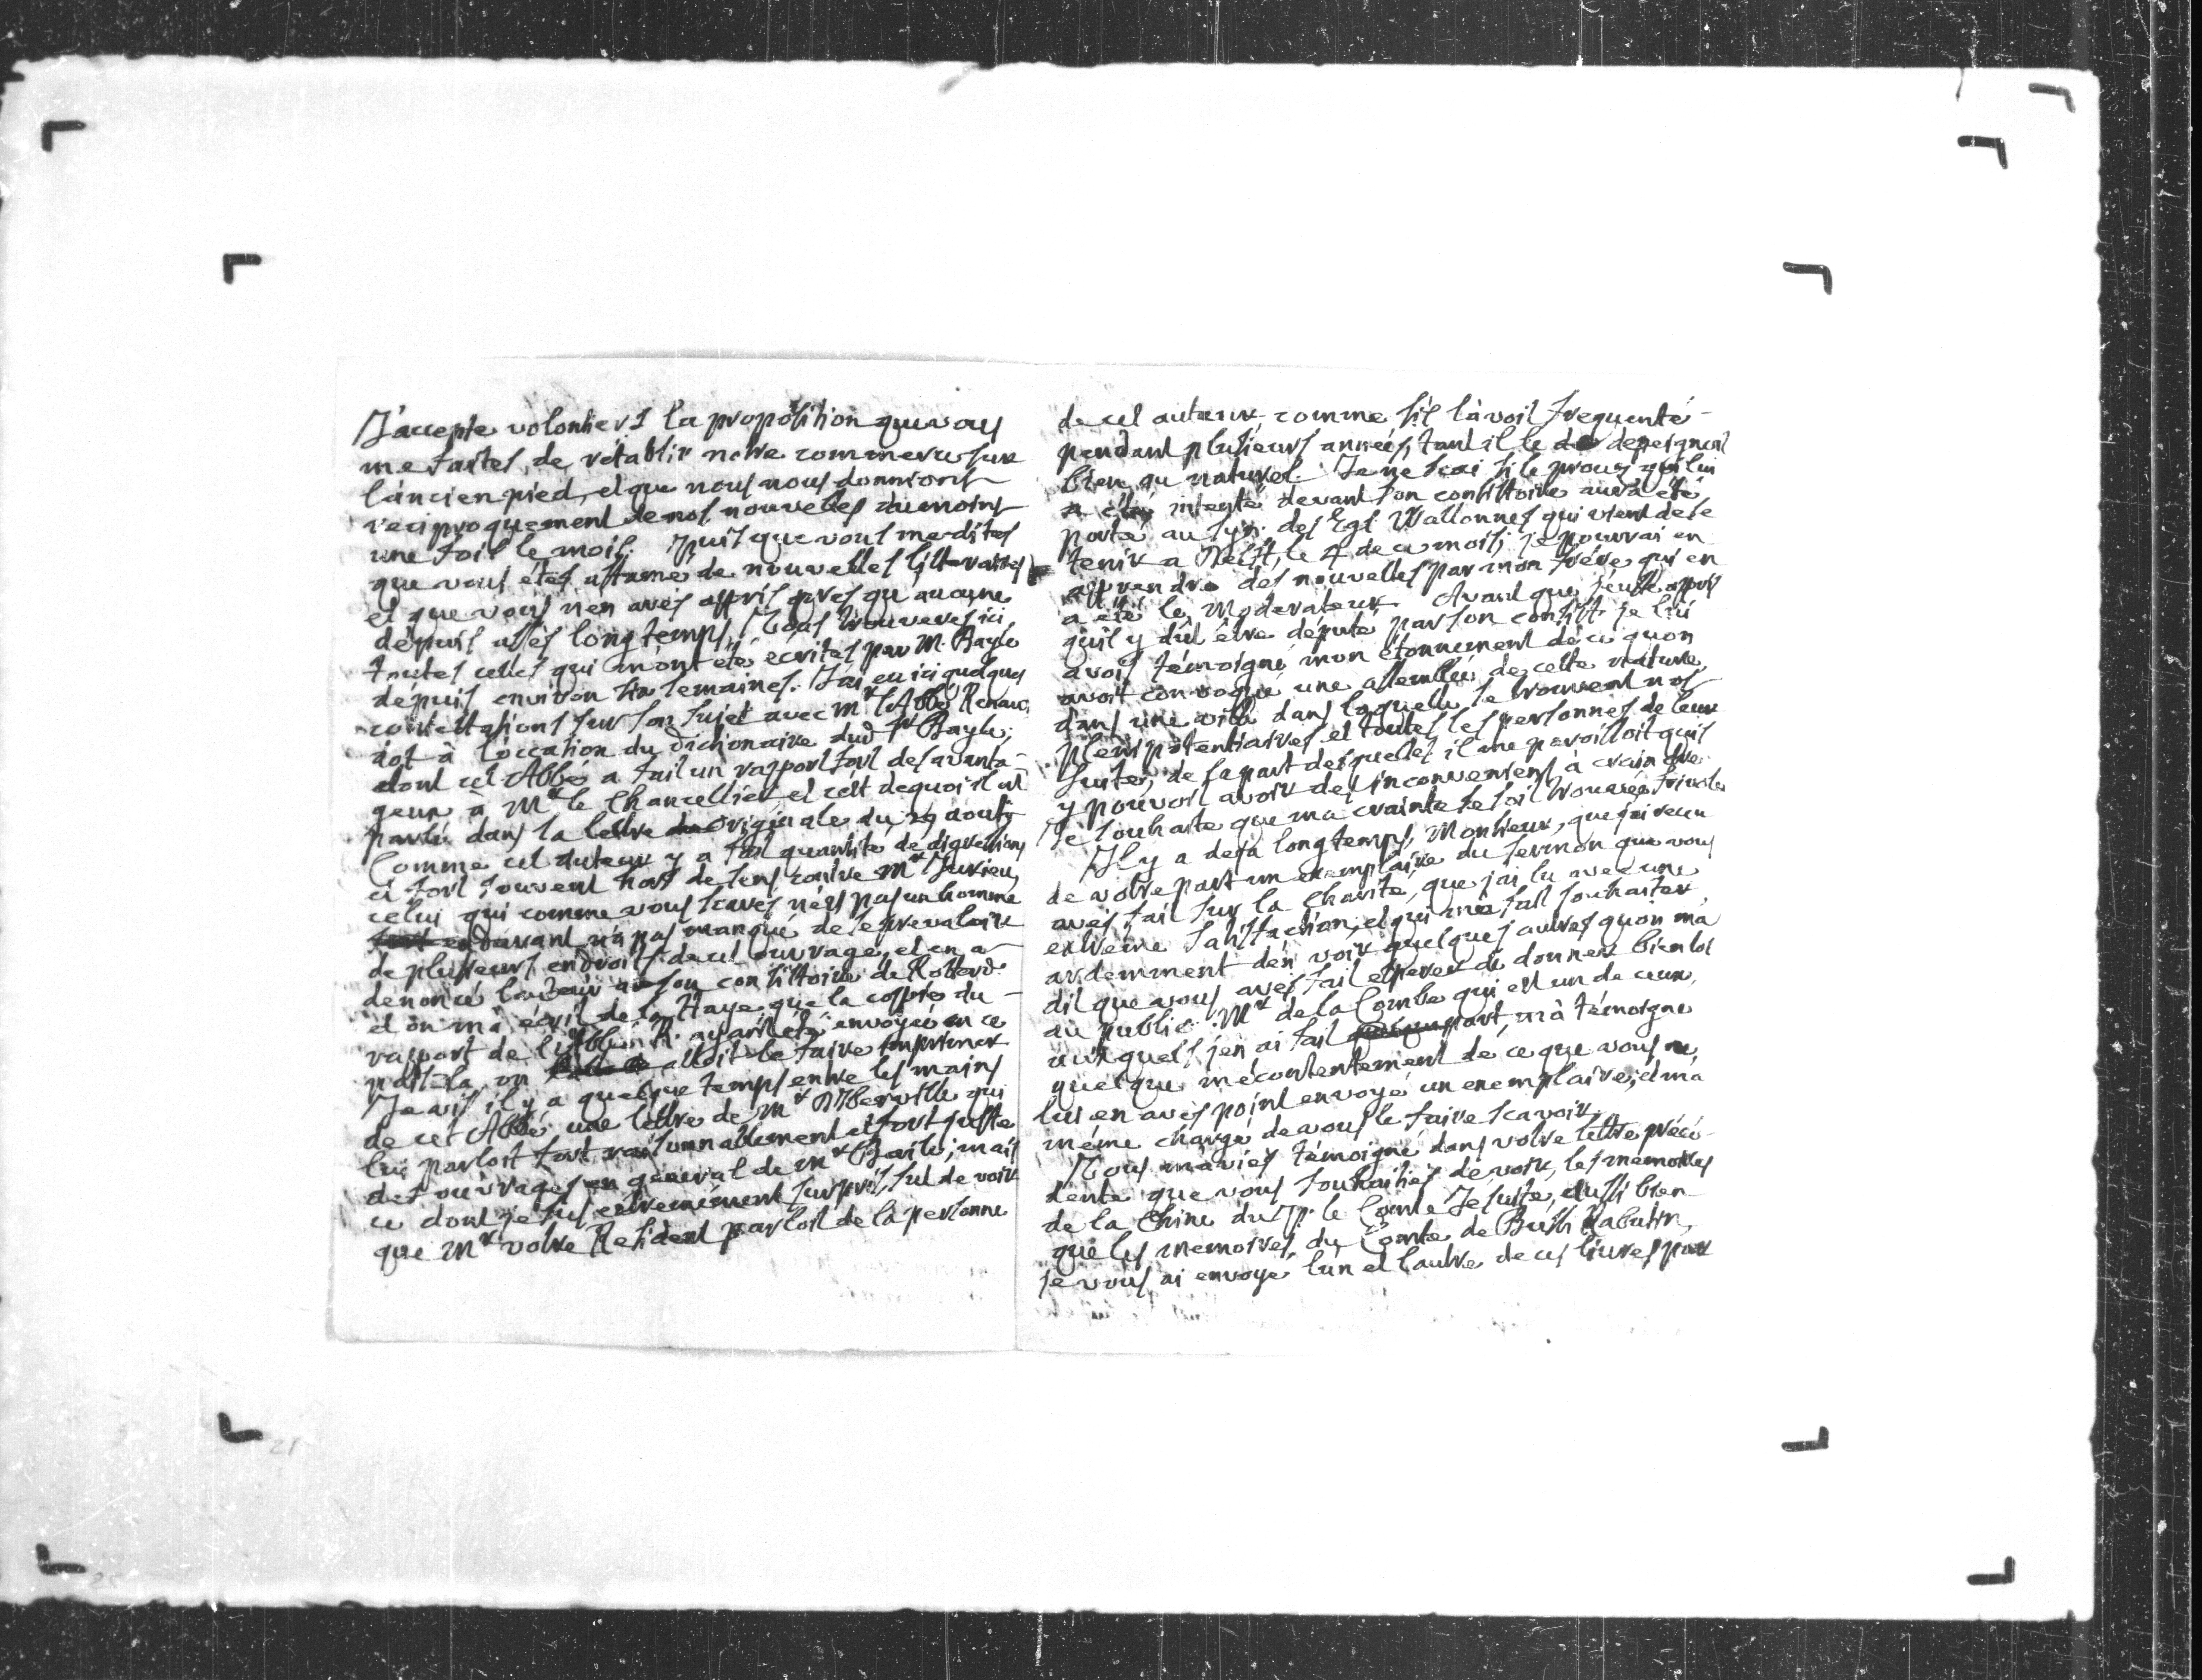 J'accepte volontiers la proposition que vous
me faites, de rétablir nôtre commerce sur
l'ancien pied, et que nous nous donnions
reciproquement de nos nouvelles du moins
une fois le mois. Puis que vous me dites
que vous étes affamé de nouvelles litteraires
et que vous n'en avés appris presqu'aucune
dépuis assés long temps, Vous trouverés ici
toutes celles qui m'ont été écrites par M. Bayle
dépuis environ six semaines. J'ai eu ici quelques
contestations sur son sujet avec Mr l'Abbé Renau-
dot à l'occasion du dictionaire dud. Sr Bayle;
dont cet Abbé a fait un rapport fort desavanta-
geux a Mr le Chancellier, et c'est dequoi il est
parlé dans la lettre originale du 29 aoust
Comme cet auteur y a fait quantité de digressions
et fort souvent hors de sens contre Mr Jurieu,
celui qui comme vous scavés n'est pas un homme
endurant n'a pas manqué de se prevaloir
de plusieurs endroits de cet ouvrage, et en a
denoncé l'auteur a son consistoire de Rotterd.
et on m'a écrit de la Haye, que la coppie du
rapport de l'Abbé R. ayant été envoyée en ce
païs-la, on alloit le faire imprimer
Je vis il y a quelque temps entre les mains
de cet Abbé une lettre de Mr d'Alberville qui
lui parloit fort raisonnablement et fort juste
des ouvrages en general de Mr Baile; mais
ce dont je fus extremément surpris, fut de voir
que Mr votre Resident parloit de la personne
de cet auteur, comme s'il l'avoit frequenté
pendant plusieurs années, tant il le depeignoit
bien au naturel. Je ne scai si le procez qui lui
a été intenté devant son consistoire aura été
porté au Syn. des Egl. Wallonnes qui vient de se
tenir a Delft, le 4 de ce mois; je pourrai en
apprendre des nouvelles par mon frére qui en
a été le Moderateur. Avant que j'eusse appris
qu'il y dût être député par son consist. je lui
avois témoigné mon étonnement de ce quon
avoit convoqué une assemblée de cette nature,
dans une ville dans laquelle se trouvent nos
plenipotentiaires et toutes les personnes de leur
suite, de la part desquelles il me paroissoit quil
y pouvoit avoir des inconveniens à craindre
Je souhaite que ma crainte se soit trouvée frivole
Il y a deja long temps, Monsieur, que j'ai receu
de votre part un exemplaire du sermon que vous
avés fait sur la Charité, que j'ai lu avec une
extreme satisfaction, et qui m'a fait souhaiter
ardemment d'en voir quelques autres qu'on m'a
dit que vous avés fait esperer de donner bientot
au public. Mr de la Combe qui est un de ceux,
auxquels j'en ai fait part, m'a témoigné
quelque mécontentement de ce que vous ne
lui en avés point envoyé un exemplaire, et m'a
même chargé de vous le faire scavoir.
Vous m'aviés témoigné dans votre lettre précé-
dente que vous souhaitiés de voir, les memoires
de la Chine du P. le Comte Jesuite, aussi bien
que les memoires du Comte de Bussi Rabutin,
je vous ai envoyé l'un et l'autre de ces livres par